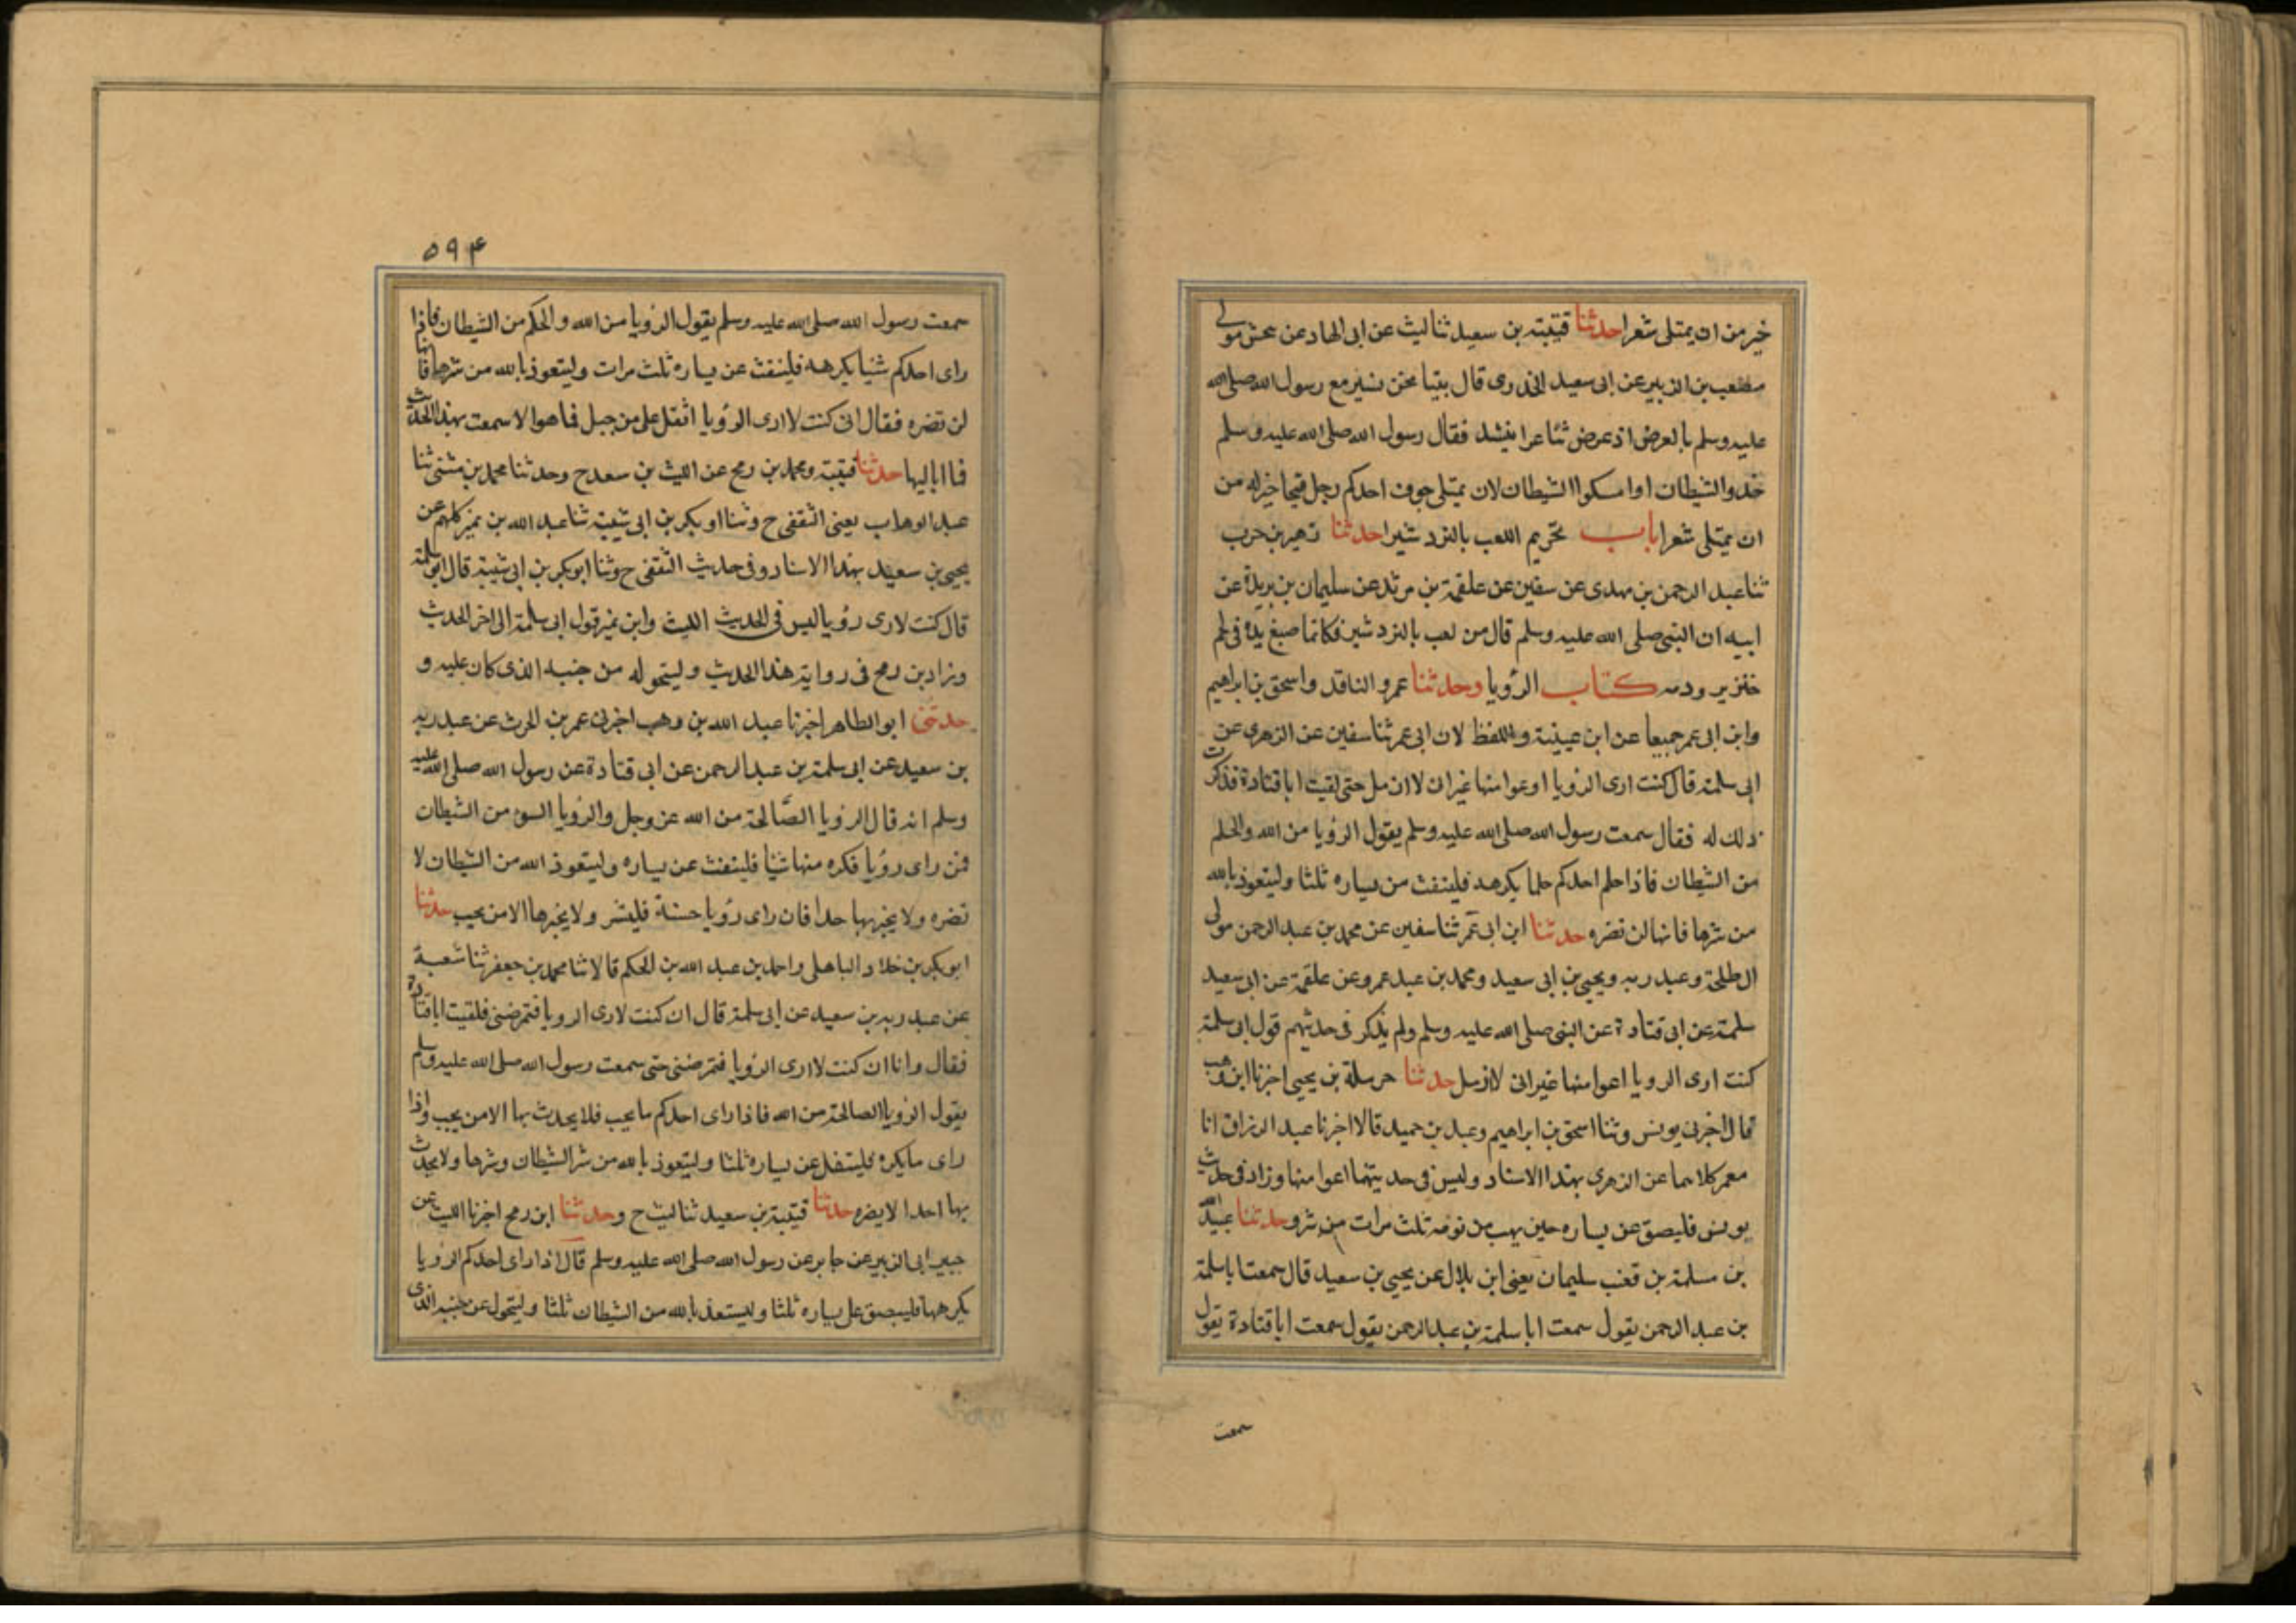 خير من ان يمتلى شعرا حدثنا قتيبة بن سعيد ثنا ليث عن ابى الهاد عن يحنش مولى
مصعب بن الزبير عن ابى سعيد الخدرى قال بينا نحن نسير مع رسول الله صلى الله
عليه وسلم بالعرض اذ عرض شاعرا ينشد فقال رسول الله صلى الله عليه وسلم
خذوا الشيطان او امسكوا الشيطان لان يمتلى جوف احدكم رجل قيحا خير له من
ان يمتلى شعرا باب تحريم اللعب بالنردشير حدثنا زهير بن حرب
ثنا عبد الرحمن بن مهدى عن سفين عن علقمة بن مرثد عن سليمان بن بريدة عن
ابيه ان النبى صلى الله عليه وسلم قال من لعب بالنردشير فكانما صبغ يده فى لحم
خنزير ودمه كتاب الرؤيا وحدثنا عمرو الناقد واسحق بن ابراهيم
وابن ابى عمر جميعا عن ابن عيينة واللفظ لابن ابى عمر ثنا سفين عن الزهرى عن
ابى سلمة قال كنت ارى الرؤيا اوعوا منها غير ان لا ازمل حتى لقيت ابا قتادة فذكرت
ذلك له فقال سمعت رسول الله صلى الله عليه وسلم يقول الرؤيا من الله والحلم
من الشيطان فاذا حلم احدكم حلما يكرهه فلينفث من يساره ثلثا وليتعوذ بالله
من شرها فانها لن تضره حدثنا ابن ابى عمر ثنا سفين عن محمد بن عبد الرحمن مولى
ال طلحة وعبد ربه ويحيى بن ابى سعيد ومحمد بن عبد عمرو عن علقمة عن ابى سعيد
سلمة عن ابى قتادة عن النبى صلى الله عليه وسلم ولم يذكر فى حديثهم قول ابى سلمة
كنت ارى الرويا اعوا منها غير انى لا ازمل حدثنا حرملة بن يحيى اخبرنا ابن وهب
قال اخبرنى يونس وثنا اسحق بن ابراهيم وعبد بن حميد قالا اخبرنا عبد الرزاق انا
معمر كلاهما عن الزهرى بهذا الاسناد وليس فى حديثهما اعوا منها وزاد فى حديث
يونس فليبصق عن يساره حين يهب من نومه ثلث مرات من شر وحدثنا عبد الله
بن مسلمة بن قعنب سليمان يعنى ابن بلال عن يحيى بن سعيد قال سمعت ابا سلمة
بن عبد الرحمن يقول سمعت ابا سلمة بن عبد الرحمن يقول سمعت ابا قتادة يقول
سمعت
٥٩۴
سمعت رسول الله صلى الله عليه وسلم يقول الرؤيا من الله والحلم من الشيطان فاذا
راى احدكم شئيا يكرهه فلينفث عن يساره ثلث مرات وليتعوذ بالله من شرها فانها
لن تضره فقال انى كنت لا ارى الرؤيا اثقل على من جبل فما هو الا سمعت بهذا الحديث
فما اباليها حدثنا قتيبة ومحمد بن رمح عن الليث بن سعد ح وحدثنا محمد بن مثنى ثنا
عبد الوهاب يعنى الثقفى ح وثنا او بكر بن ابى شيبة ثنا عبد الله بن نمير كلهم عن
يحيى بن سعيد بهذا الاسناد وفى حديث الثقفى ح وثنا ابو بكر بن ابى شيبة قال ابو سلمة
قال كنت لارى رؤيا ليس فى الحديث الليث وابن نمير قول ابى سلمة الى اخر الحديث
وزاد بن رمح فى رواية هذا الحديث وليتحوله من جنبه الذى كان عليه و
حدثنى ابو الطاهر اخبرنا عبد الله بن وهب اخبرنى عمر بن الحرث عن عبد ربه
بن سعيد عن ابى سلمة بن عبد الرحمن عن ابى قتادة عن رسول الله صلى الله عليه
وسلم انه قال الرؤيا الصالحة من الله عز وجل والرؤيا السوء من الشيطان
فمن راى رؤيا فكره منها شيا فلينفث عن يساره وليتعوذ الله من الشيطان لا
تضره ولا يخبر بها حدا فان راى رؤيا حسنة فليبشر ولا يخبرها الا من يحب حدثنا
ابو بكر بن خلاد الباهلى واحمد بن عبد الله بن الحكم قالا ثنا محمد بن جعفر ثنا شعبة
عن عبد ربه بن سعيد عن ابى سلمة قال ان كنت لارى الرويا فتمرضنى فلقيت ابا قتادة
فقال وانا ان كنت لا ارى الرؤيا فتمرضنى حتى سمعت رسول الله صلى الله عليه وسلم
يقول الرؤيا الصالحة من الله فاذا راى احدكم ما يحب فلا يحدث بها الا من يحب واذا
راى ما يكره فليتفل عن يساره ثلثا وليتعوذ بالله من شر الشيطان وشرها ولا يحدث
بها احدا لا يضره حدثنا قتيبة بن سعيد ثنا ليث ح وحدثنا ابن رمح اخبرنا الليث عن
جبير ابى الزبير عن جابر عن رسول الله صلى الله عليه وسلم قال اذا راى احدكم الرؤيا
يكرهها فليبصق على يساره ثلثا وليستعذ بالله من الشيطان ثلثا وليتحول عن جنبه الذى